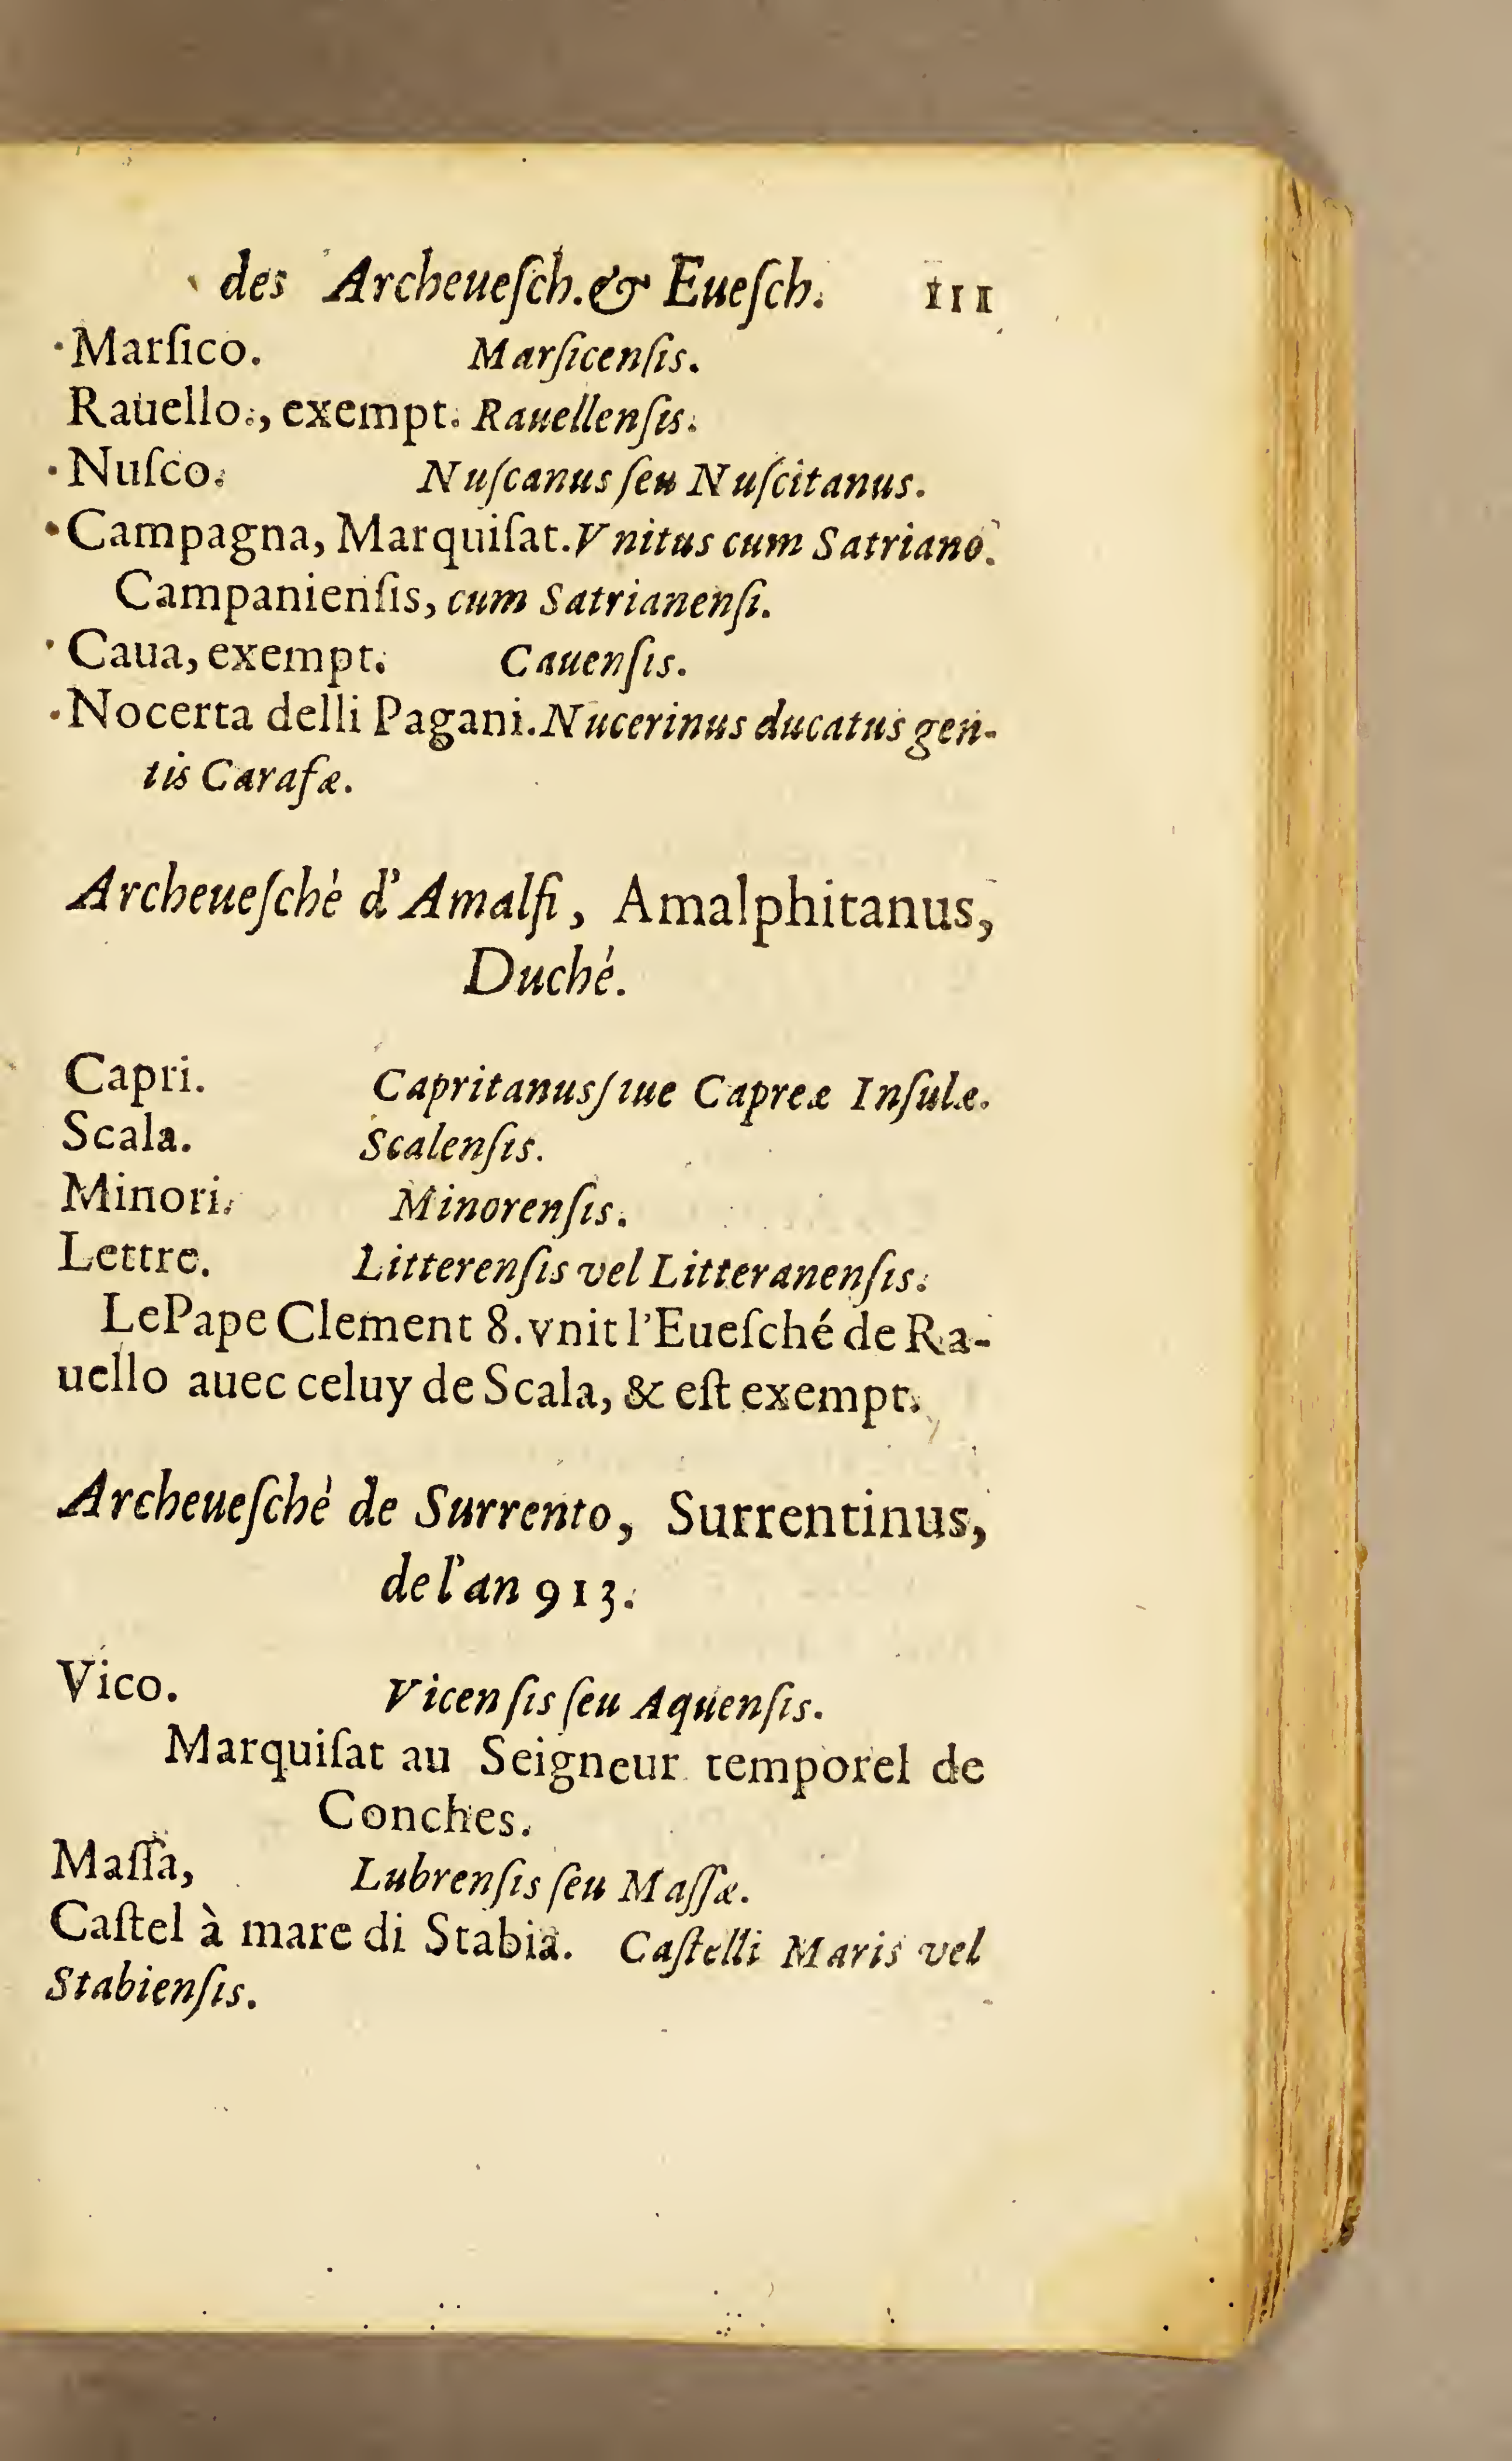 des Archeueſch. & Eueſch. 111
Marſico. Marſicenſis.
Rauello., exempt. Rauellenſis.
Nuſco. Nuſcanus ſeu Nuſcitanus.
Campagna, Marquiſat. Vnitus cum Satriano.
Campanienſis, cum Satrianenſi.
Caua, exempt. Cauenſis.
Nocerta delli Pagani. Nucerinus ducatus gen-
tis Carafæ.
Archeueſché d'Amalfi, Amalphitanus,
Duché.
Capri. Capritanus ſiue Capreæ Inſulæ.
Scala. Scalenſis.
Minori. Minorenſis.
Lettre. Litterenſis vel Litteranenſis.
Le Pape Clement 8. vnit l'Eueſché de Ra-
uello auec celuy de Scala, & eſt exempt.
Archeueſché de Surrento, Surrentinus,
de l'an 913.
Vico. Vicenſis ſeu Aquenſis.
Marquiſat au Seigneur temporel de
Conches.
Maſſa, Lubrenſis ſeu Maſſæ.
Caſtel à mare di Stabia. Caſtelli Maris vel
Stabienſis.